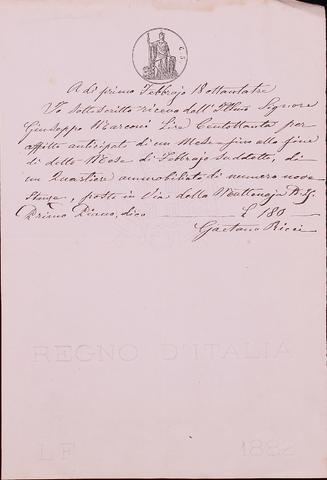 A di primo Febbrajo 18 ottantatre
Io sottoscritto ricevo dall' Illmo Signore
Giuseppe Marconi Lire Centottanta per
affitto anticipato di un Mese fino alla fine
di detto Mese di Febbrajo suddetto, di
un Quartiere ammobiliato di numero nove
Stanze, posto in Via della
Primo Piano, dico £ 180
Gaetano Ricci
REGNO D'ITALIA
1882